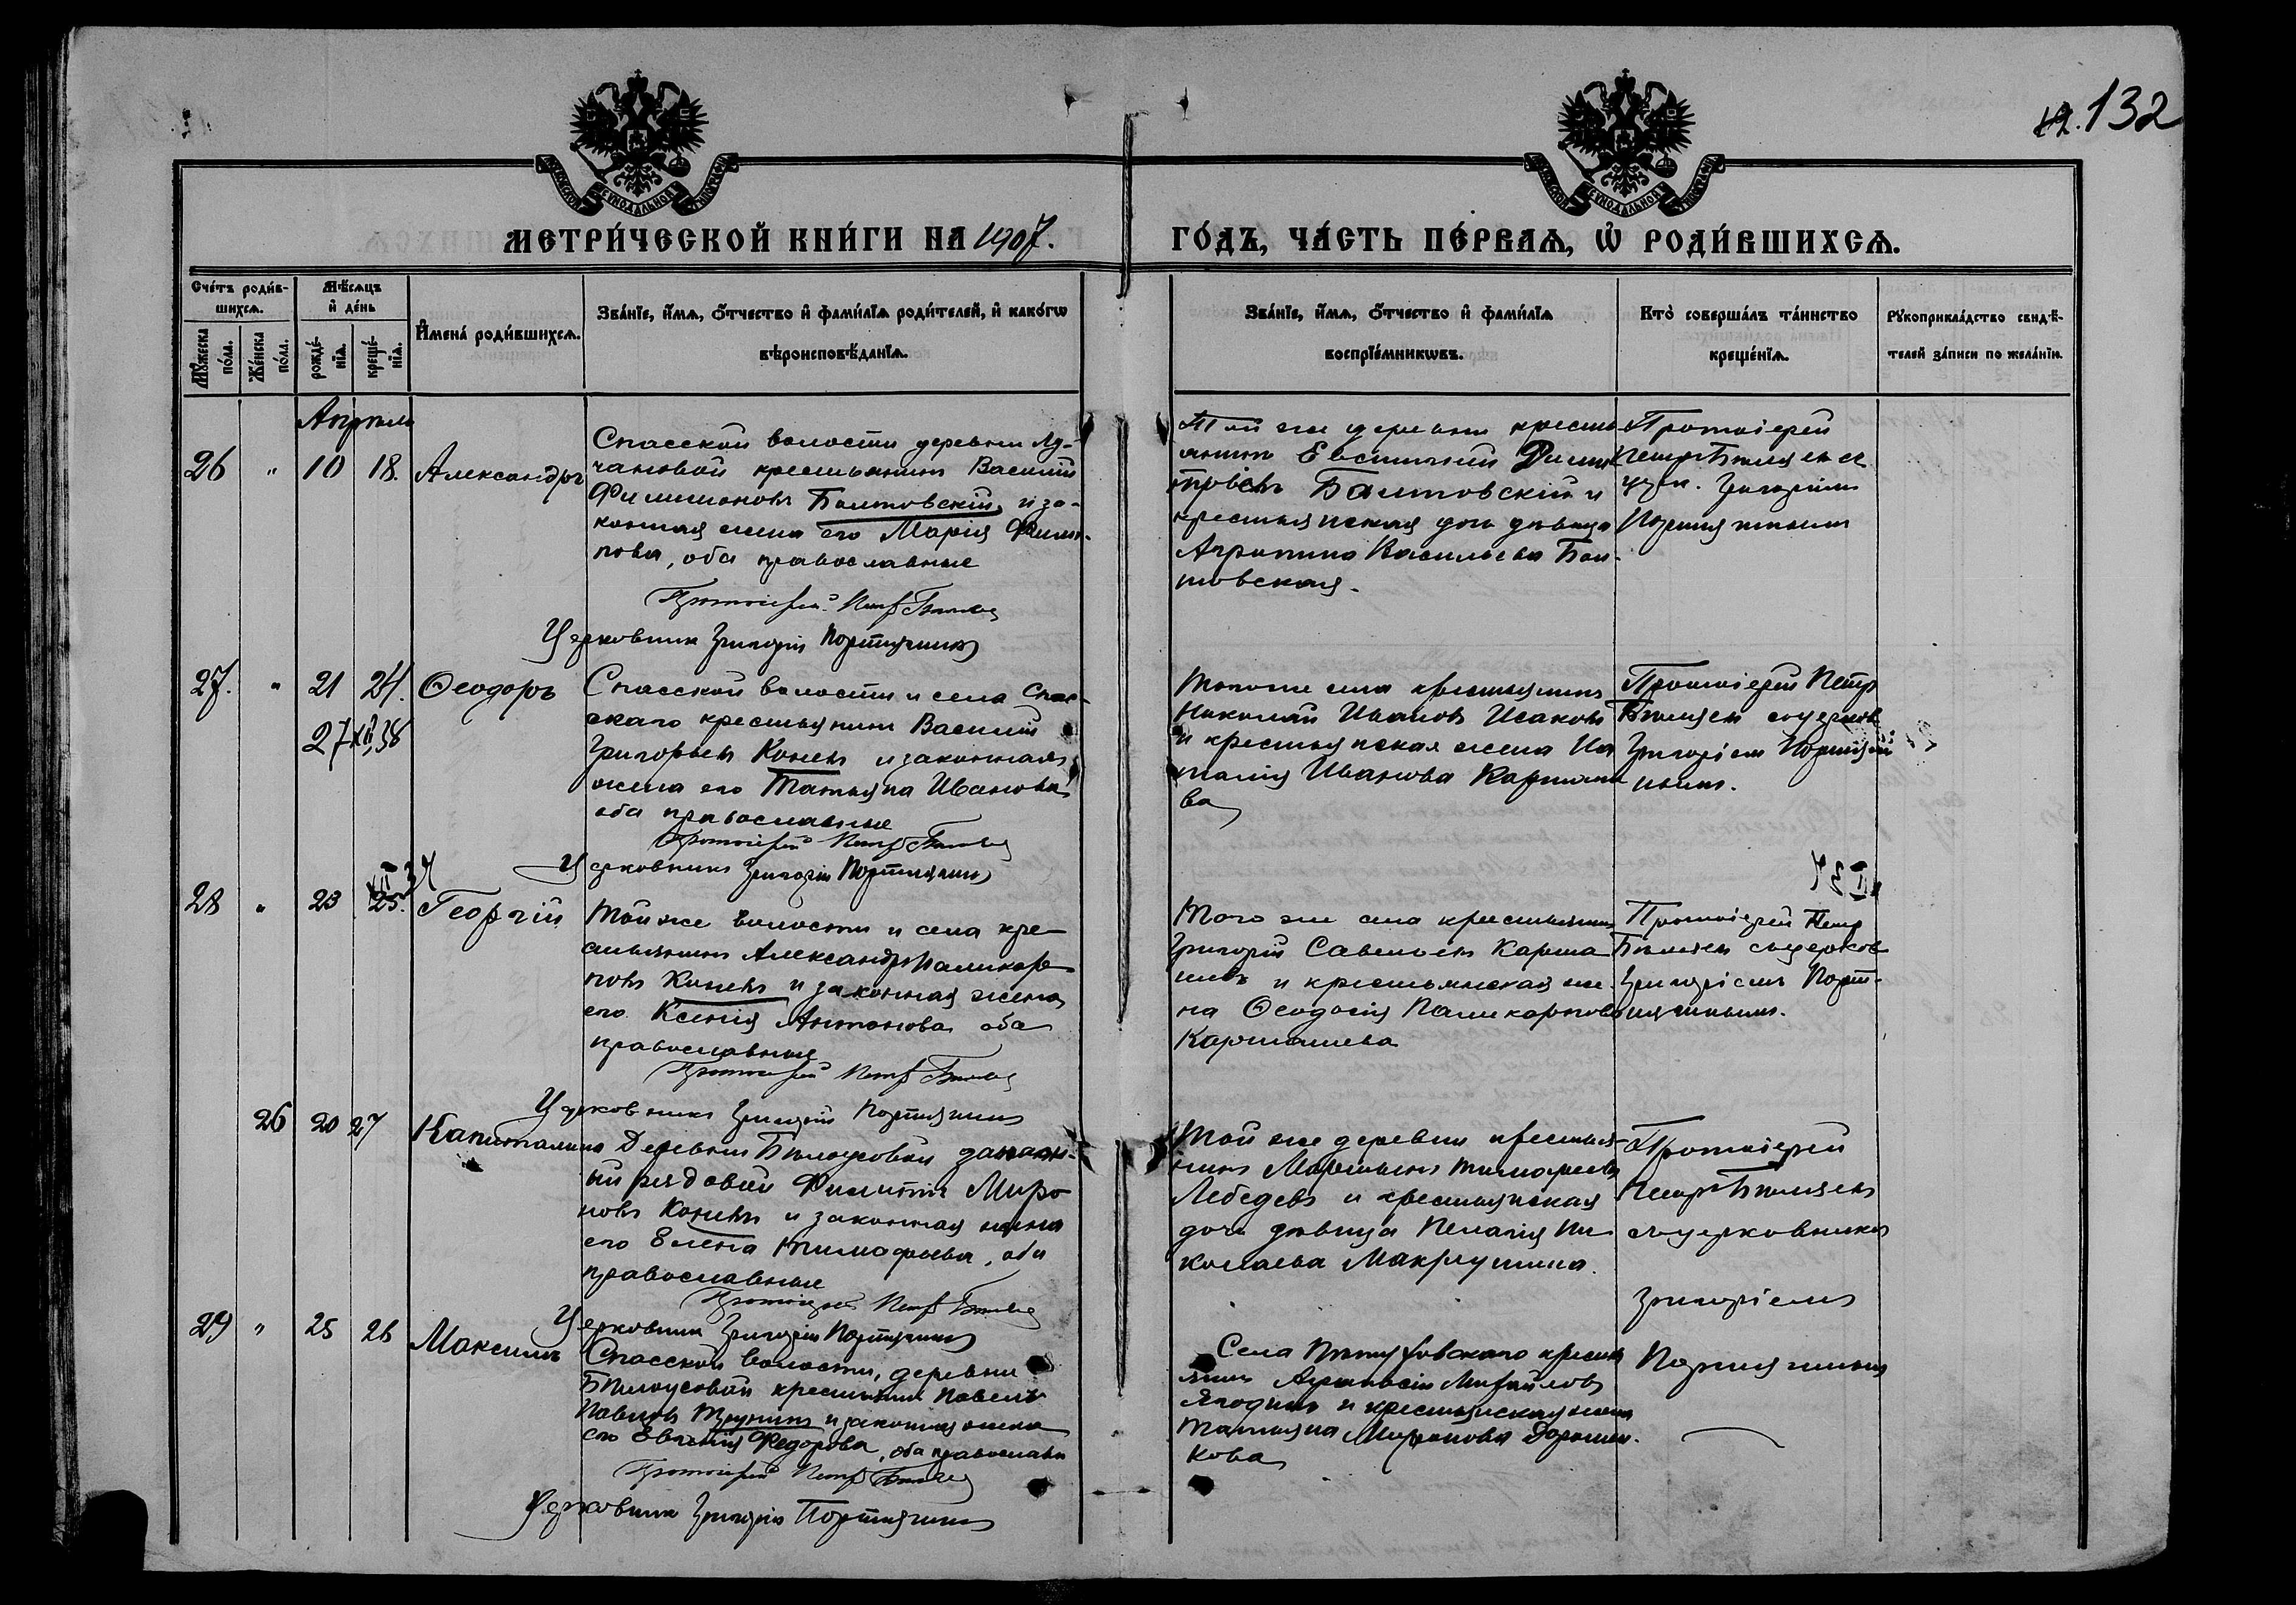 132
МЕТРИ́ЧЕСКОЙ КНИ́ГИ НА 1907.
ГО́ДЪ, ЧА́СТЬ ПЕ́РВАѦ, Ѡ҆ РОДИ́ВШИХСѦ.
Сче́тъ роди́в-
шихсѧ.
Мꙋжеска по́ла.
Же́нска по́ла.
Мѣ́сѧцъ
и҆ де́нь
рожде́-
нїѧ.
креще́-
нїѧ.
И҆мена̀ роди́вшихсѧ.
Зва́нїе, и҆́мѧ, ѻ҆́тчество и҆ фами́лїѧ роди́телей, и҆ како́гѡ
вѣроисповѣ́данїѧ.
Зва́нїе, и҆́мѧ, ѻ҆́тчество и҆ фами́лїѧ
воспрїе́мникѡвъ.
Кто̀ соверша́лъ та́инство
креще́нїѧ.
Рꙋкоприкла́дство свидѣ́-
телей за́писи по жела́нїю.
Апрѣль
26 " 10 18. Александръ
Спасской волости деревни Лу-
чановой крестьянинъ Василій
Филимоновъ Балтовскій и за-
конная жена его Марія Филип-
пова, оба православные
Протоіерей Петръ
Церковникъ Григорій Портнягинъ
Той же деревни крестья
нинъ Евстигній Димит
ріевъ Балтовскій и
крестьянская дочь дѣвица
Агрипина Васильева Бал
товская.
Протоіерей
Петръ
церк. Григоріемъ
Портнягинымъ
27. " 21 24. Ѳеодоръ
27 XII 38
Спасской волости и села Спас-
скаго крестьянинъ Василій
Григорьевъ Коневъ и законная
жена его Татьяна Иванова
оба православные
Протоіерей Петръ
Церковникъ Григорій Портнягинъ
Того же села крестьянинъ
Николай Ивановъ Исаковъ
и крестьянская жена На
талія Иванова Карташе
ва
Протоіерей Петръ
съ церков
Григоріемъ Портняги
нымъ.
28 " 23 25. Георгій
Той же волости и села кре-
стьянинъ Александръ Поликар-
повъ Коневъ и законная жена
его Ксенія Антонова оба
православныя
Протоіерей Петръ
Церковникъ Григорій Портнягинъ
Того же села крестьянинъ
Григорій Савельевъ Карта
шевъ и крестьянская же
на Ѳеодосія Поликарпова
Карташева
Протоіерей Петръ
съ церков
Григоріемъ Порт-
нягинымъ.
26 20 27 Капиталина
Деревни Бѣлоусовой запасн-
ый рядовой Филиппъ Миро
новъ Коневъ и законная жена
его Елена Тимофеева, оба
православные
Протоіерей Петръ
Церковникъ Григорій Портнягинъ
Той же деревни крестья-
нинъ Тимофеевъ
Лебедевъ и крестьянская
дочь дѣвица Пелагія Ни
колаева Макрушина.
Протоіерей
Петръ
съ церковникомъ
Григоріемъ
Портнягинымъ
29 " 25 26 Максимъ
Спасской волости, деревни
Бѣлоусовой крестьянинъ Павелъ
Павловъ Трунинъ и законная жена
его Евгенія Федорова, оба православн
Протоіерей Петръ
Церковникъ Григорій Портнягинъ
Села крестья
нинъ Афанасій Михайловъ
Ягодинъ и крестьянская жена
Татьяна Миронова
кова